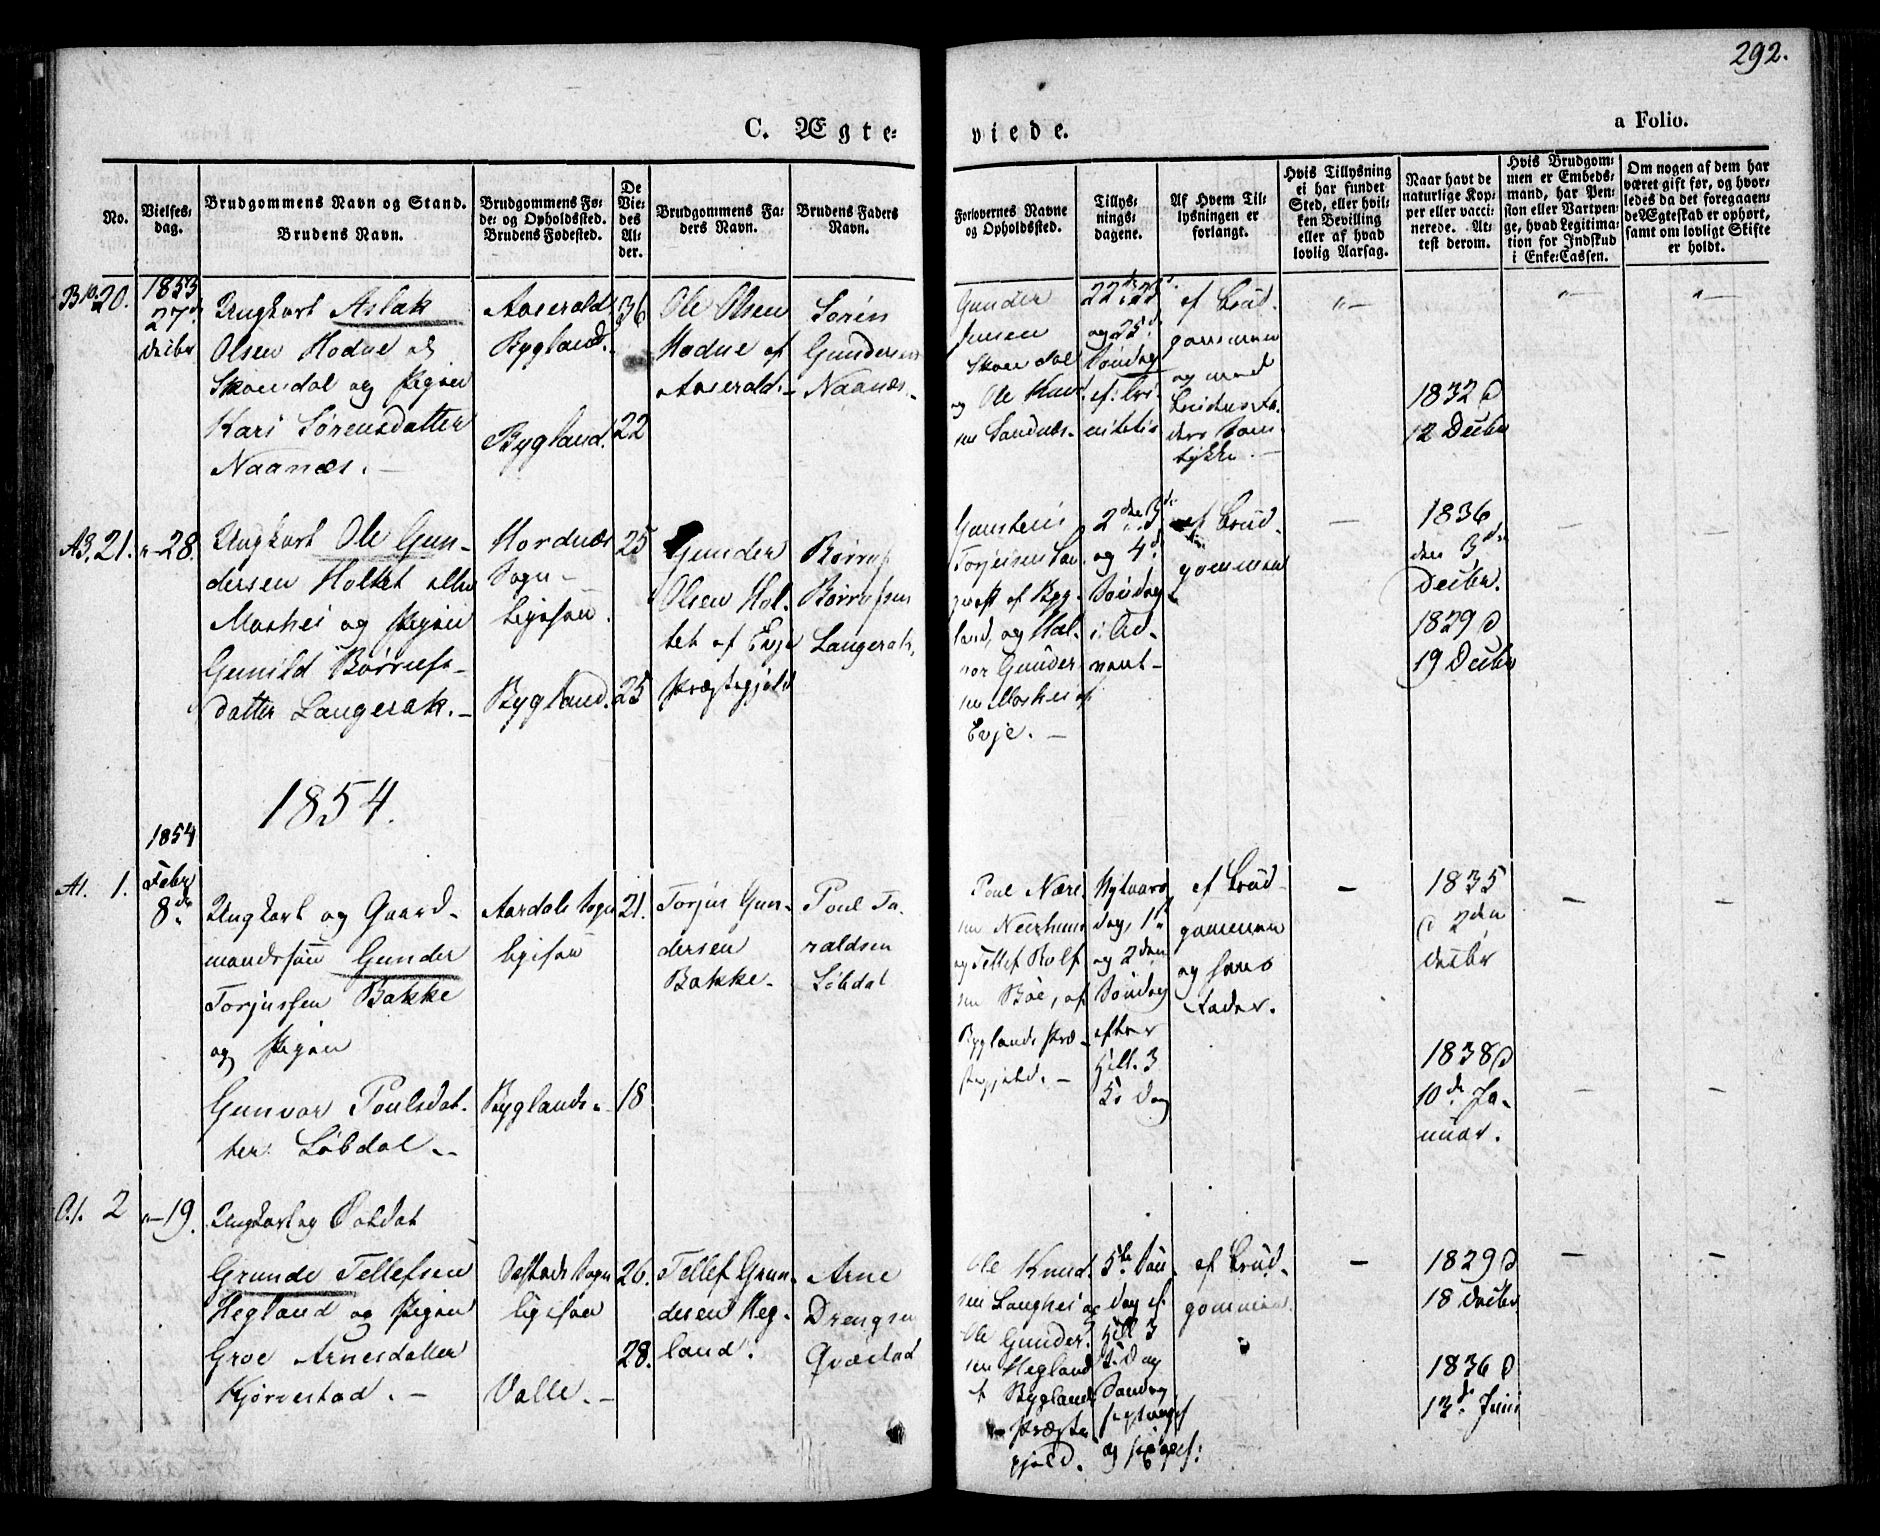 292.
C. Ægte-
viede.
a Folio.
No.
Vielses-
dag.
Brudgommens Navn og Stand.
Brudens Navn.
Brudgommens Fø-
de- og Opholdssted.
Brudens Fødested.
De
Vie-
des
Al-
der.
Brudgommens Fa-
ders Navn.
Brudens Faders
Navn.
Forlovernes Navne
og Opholdssted.
Tillys-
nings-
dagene.
Af Hvem Til-
lysningen er
forlangt.
Hvis Tillysning
ei har fundet
Sted, eller hvil-
ken Bevilling
eller af hvad
lovlig Aarsag.
Naar havt de
naturlige Kop-
per eller vacci-
nerede. At-
test derom.
Hvis Brudgom-
men er Embeds-
mand, har Pen-
sion eller Vartpen-
ge, hvad Legitima-
tion for Indskud
i Enke-Cassen.
Om nogen af dem har
været gift før, og hvor-
ledes da det foregaaen-
de Ægteskab er ophørt,
samt om lovligt Skifte
er holdt.
B10. 20.
1853
27de
Decbr
Ungkarl Aslak
Olsen Hodne og
Skomdal og Pigen
Kari Sørensdatter
Naanæs. -
Aaserald
Bygland.
Bygland.
36
22
Ole Olsen
Hodne af
Aaserald. -
Søren
Gundersen
Naanæs. -
Gunder
Jensen
og Ole Knud
sen Sandnæs. -
22de, 23de
og 25de
Søndag
ef: Tri-
nitatis
ef Brud-
gommen
og med
Brudens Fa-
ders Sam-
tykke. -
1832 d
12 Decbr
A3. 21.
" - 28.
Ungkarl Ole Gun-
dersen Holtet eller
Moshei og Pigen
Gunild Børrufs-
datter Langerak. -
Hordnæs
Sogn
ligesaa.
Bygland.
25
25
Gunder
Olsen Hol-
tet af Evje
Præstegjeld
Børruf
Børrufsen
Langerak.
Gunsten
Torjussen
af Byg-
land, og Hal-
vor Gunder
sen Moshei af
Evje. -
2den, 3de
og 4de
Søndag
i Ad-
vent -
ef Brud-
gommen
1836
den 3de
Decbr.
1829 d
19 Decbr
1854.
1854
A1. 1.
Febr
8de
Ungkarl og Gaard-
mandssøn Gunder
Torjussen Bakke
og Pigen
Gunvor Poulsdat-
ter Løbdal -
Aardals Sogn
ligesaa
Byglands -
21.
18
Torjus Gun-
dersen
Bakke -
Poul Ta-
raldsen
Løbdal
Poul Næri-
og Tellef Rolf
sen Böe, af
Byglands Præ-
stegjeld. -
Nytaars
dag, 1ste
og 2den
Søndag
efter
Hell. 3
K. Dag
ef Brud-
gommen
og hans
Fader.
1835
d 2den
Decbr
1838 d
10de Ja-
nuar.
A1. 2
" - 19.
Ungkarl og Soldat
Grunde Tellefsen
Hegland og Pigen
Groe Arnesdatter
Kjørrestad. -
Sogn
ligesaa
Valle. -
26.
28.
Tellef Grun-
desen Heg-
land.
Arne
Drengsen
Qvæstad
Ole Knud-
sen Langhei og
Ole Gunder-
sen Hegland
Bygland
Præste
gjeld.
5te Søn-
dag ef.
Hell 3
K. Dag
Søndag
ef Brud-
gommen.
1829 d
18 Decbr
1836 d
13de Juni